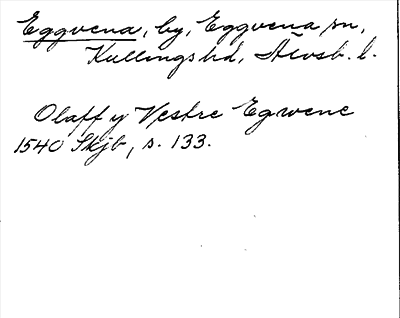 Eggvena, by, Eggvena sn,
Kullings hd, Älvsb. l.
Olaff y Vestre Egwene
1540 Skjb, s. 133.